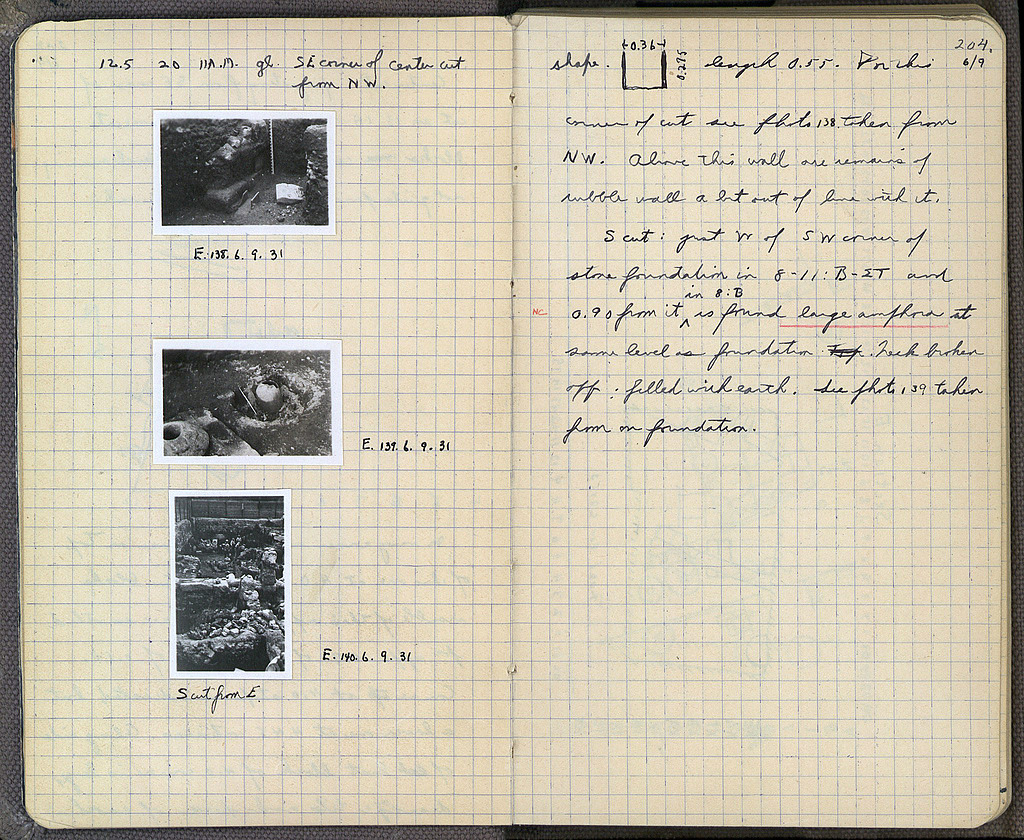 12.5 20 11A.M. gl. SE corner of center cut
from NW.
E. 138. 6. 9. 31
E. 139. 6. 9. 31
E. 140. 6. 9. 31
S cut from E.
204.
6/9
shape. 0.36 0.295 length 0.55. For this
corner of cut see photo 138 taken from
NW. Above this wall are remains of
rubble wall a bit out of line with it.
S cut: just W of SW corner of
stone foundation in 8-11: B-ΣT and
in 8:B
NC 0.90 from it ^ is found large amphora at
same level as foundation. Neck broken
off: filled with earth. See photo 139 taken
from on foundation.